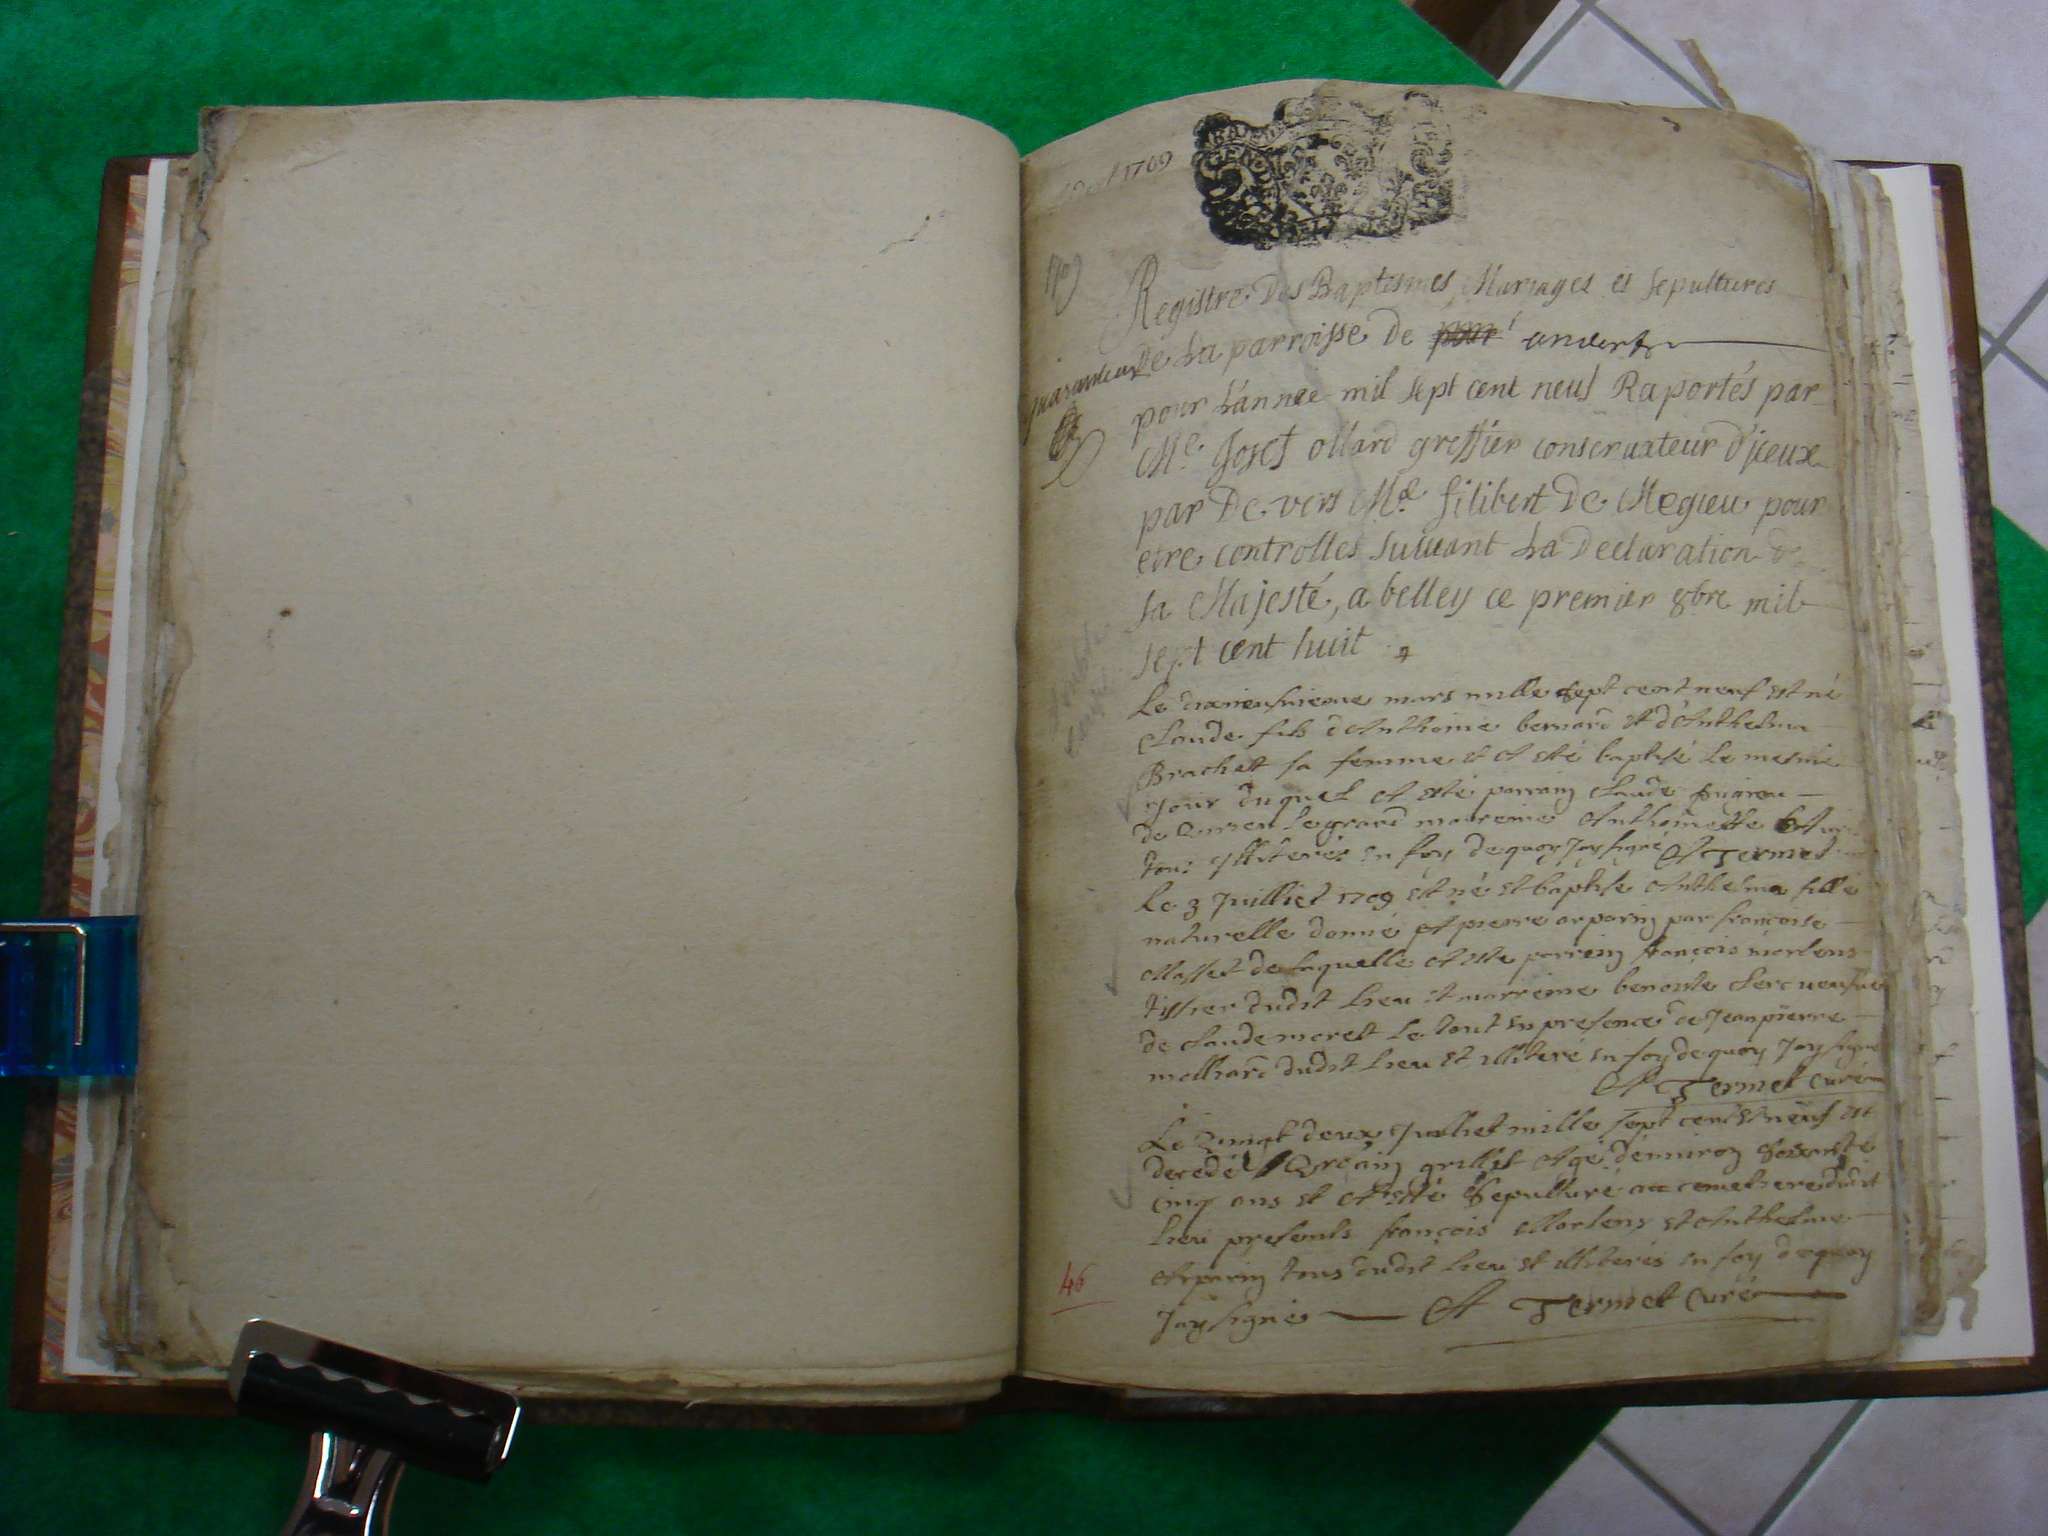 1709
1709
Registre Des Baptesmes, Mariages et Sepultures
De La parroisse De andert
pour L'annee mil sept cent neuf Raportés par
Me. Josef ollard greffier conseruateur d'jceux
par De vers Me. filibert De Megieu pour
etre controlles suiuant La Declaration de
sa Majesté, a belley ce premier 8bre mil
sept cent huit
Le dixneufuieme mars mille sept cent neuf est né
Claude fils d'Anthoine bernard et d'Anthelma
Brachet sa femme et A esté baptisé Le mesme
Jour duquel A esté parrain Claude
de Legrand marreine Anthoinette
tous Jlliterés en foy de quoy Jay signé A Termet
Le 3 Juilliet 1709 est né et baptisé Anthelma fille
naturelle donné A pierre arparin par francoise
Masset de laquelle A esté parrein françois morlens
tissier dudit Lieu et marreine benoite Clerc ueufue
de Claude moret Le tout en presence de Jean pierre
molliard dudit Lieu et illiteré en foy de quoy Jay signé
A Termet curé
Le Vingt deux Julliet mille sept cents et neuf est
decedé grillet Agé d'enuiron soixante
cinq ans et A esté sepulturé au cemetiere dudit
Lieu presents françois Morlens et Anthelme
Arparin tous dudit Lieu et illiterés en foy de quoy
Jay signé A Termet Curé
46